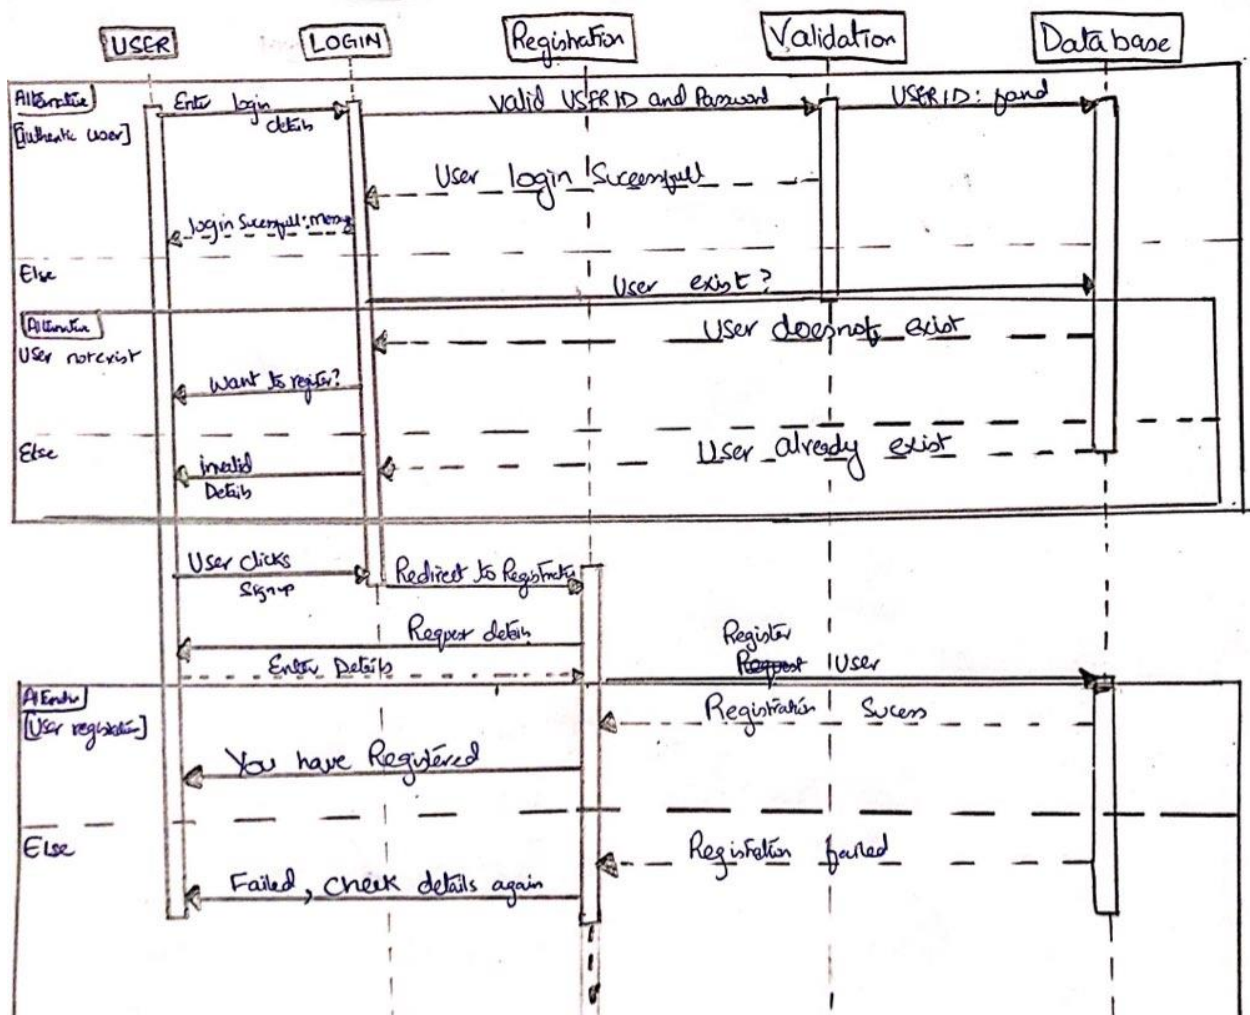 USER LOGIN Registration Validation Database
Alternative
[authentic user]
Enter login
details
Valid USERID and Password
USERID: found
User login Sucessfull
login Sucessfull: messg
Else
User exist?
Alternative
User not exist
User does not exist
Want to register?
Else
User already exist
invalid
Details
User clicks
Signup
Redirect to Registration
Request details
Enter Details
Register
Request User
[User registration]
Registration Sucess
You have Registered
Else
Registration failed
Failed, check details again